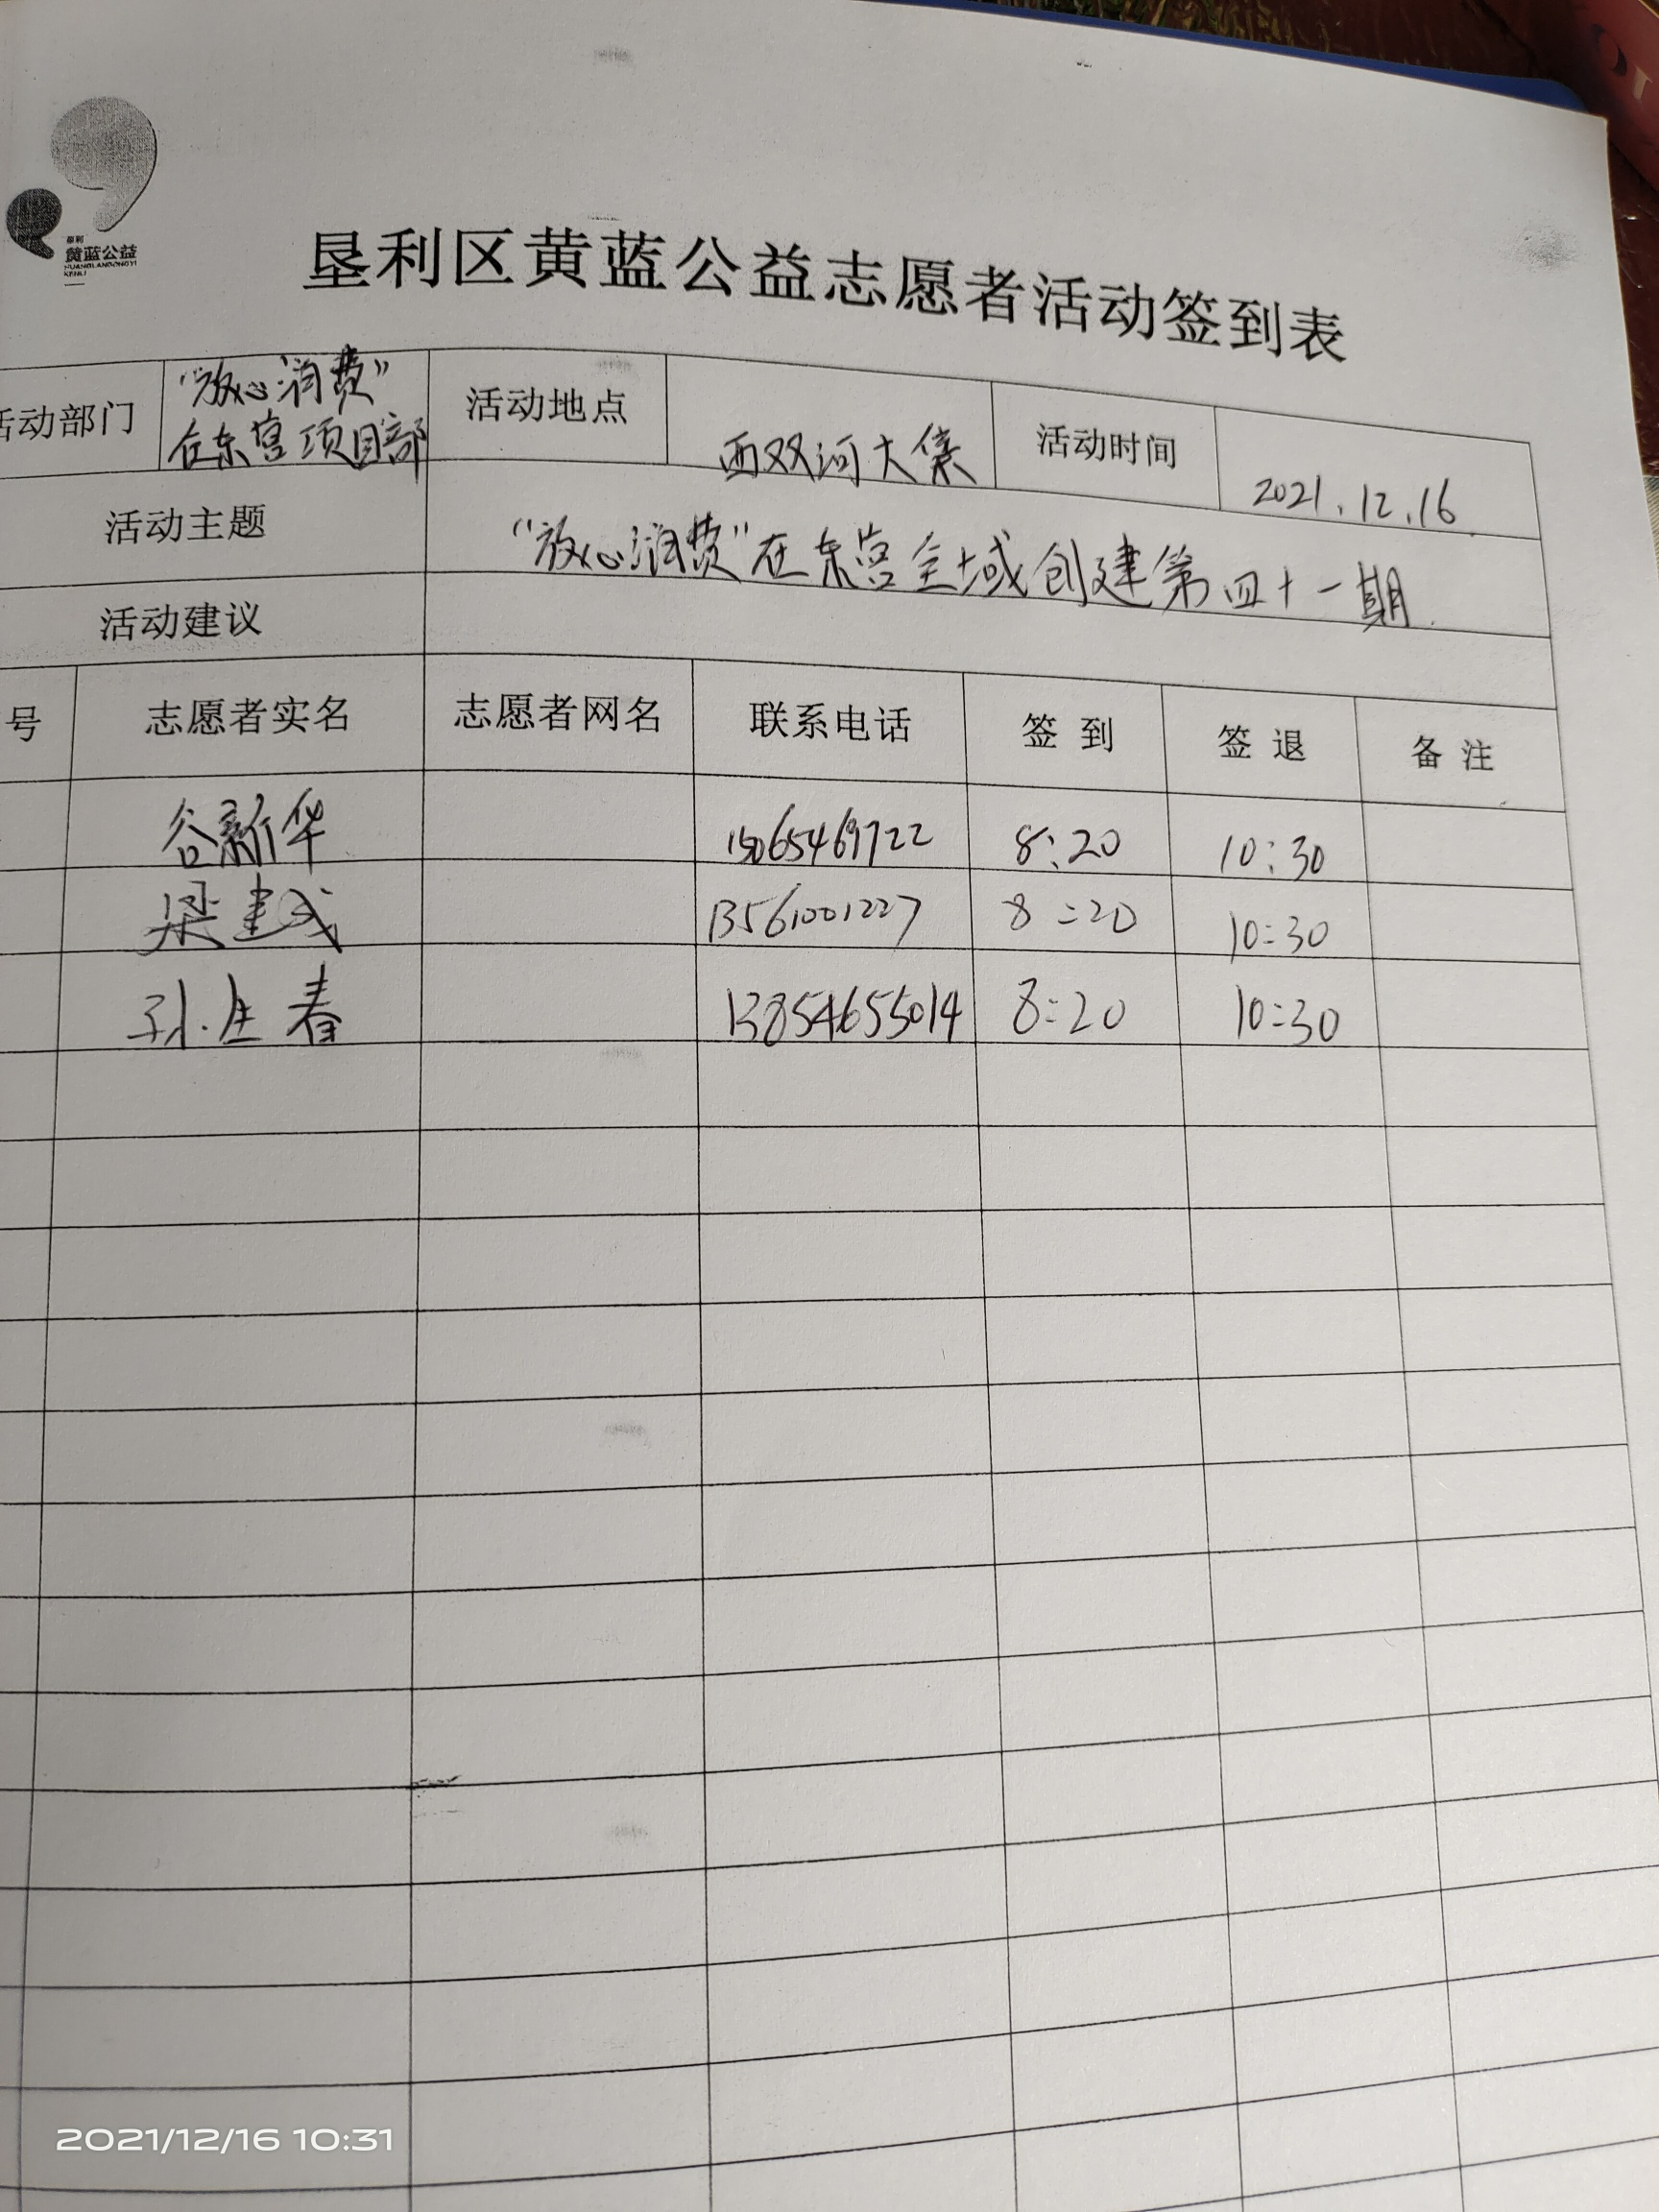 垦利
黄蓝公益
HUANGLANGONGYI
KENLI
垦利区黄蓝公益志愿者活动签到表
活动部门 “放心消费”在东营项目部 活动地点 西双河大集 活动时间 2021.12.16
活动主题 “放心消费”在东营全域创建第四十一期
活动建议
号 志愿者实名 志愿者网名 联系电话 签到 签退 备注
谷新华 15065469722 8:20 10:30
梁建成 13561001227 8:20 10:30
孙庄春 13854655014 8:20 10:30
2021/12/16 10:31